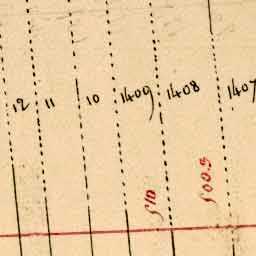 12 11 10 1409 1408 1407
510 500.3